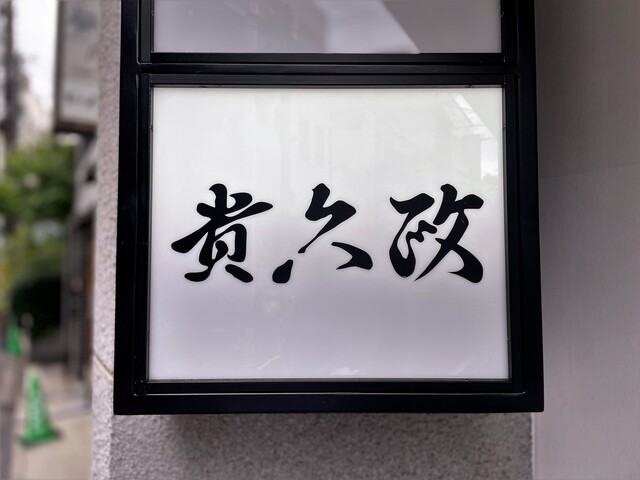 貴久政